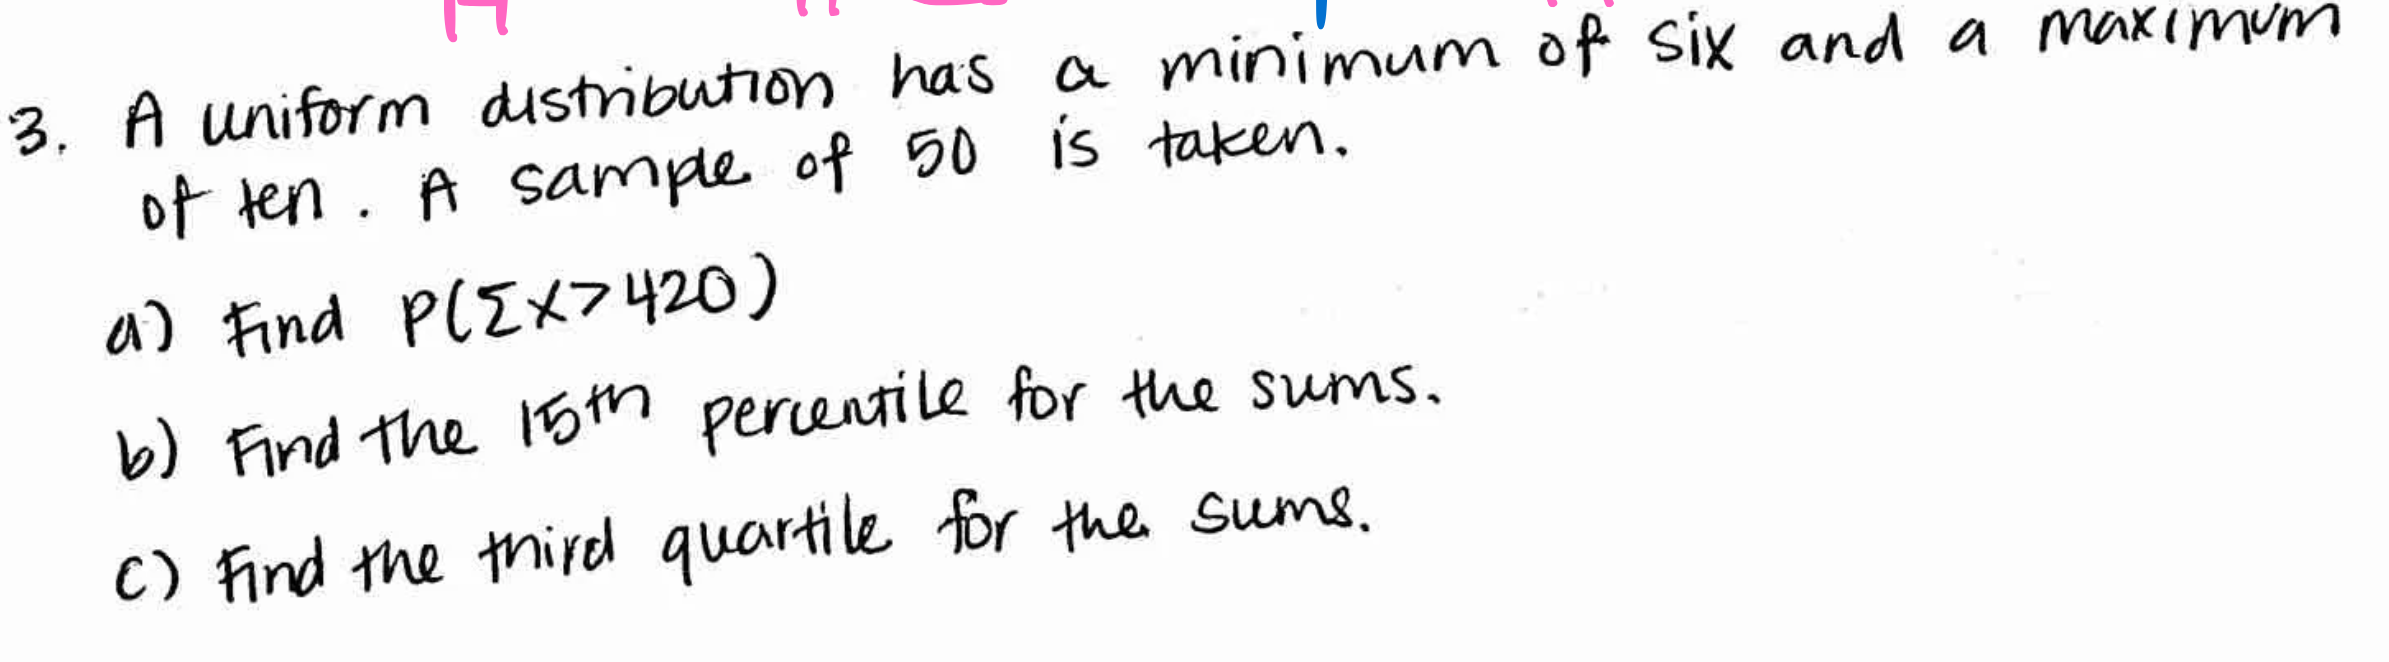 3. A uniform distribution has a minimum of six and a maximum
of ten. A sample of 50 is taken.
a) Find P(ΣX>420)
b) Find the 15th percentile for the sums.
c) Find the third quartile for the sums.